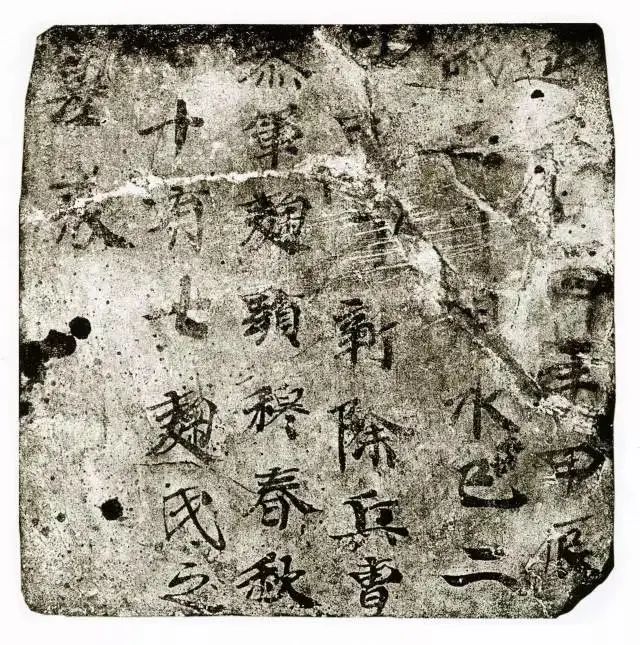 四年甲辰
歲水巳二
日新除兵曹
參軍麴顯穆春秋
十有七麴氏之
墓表